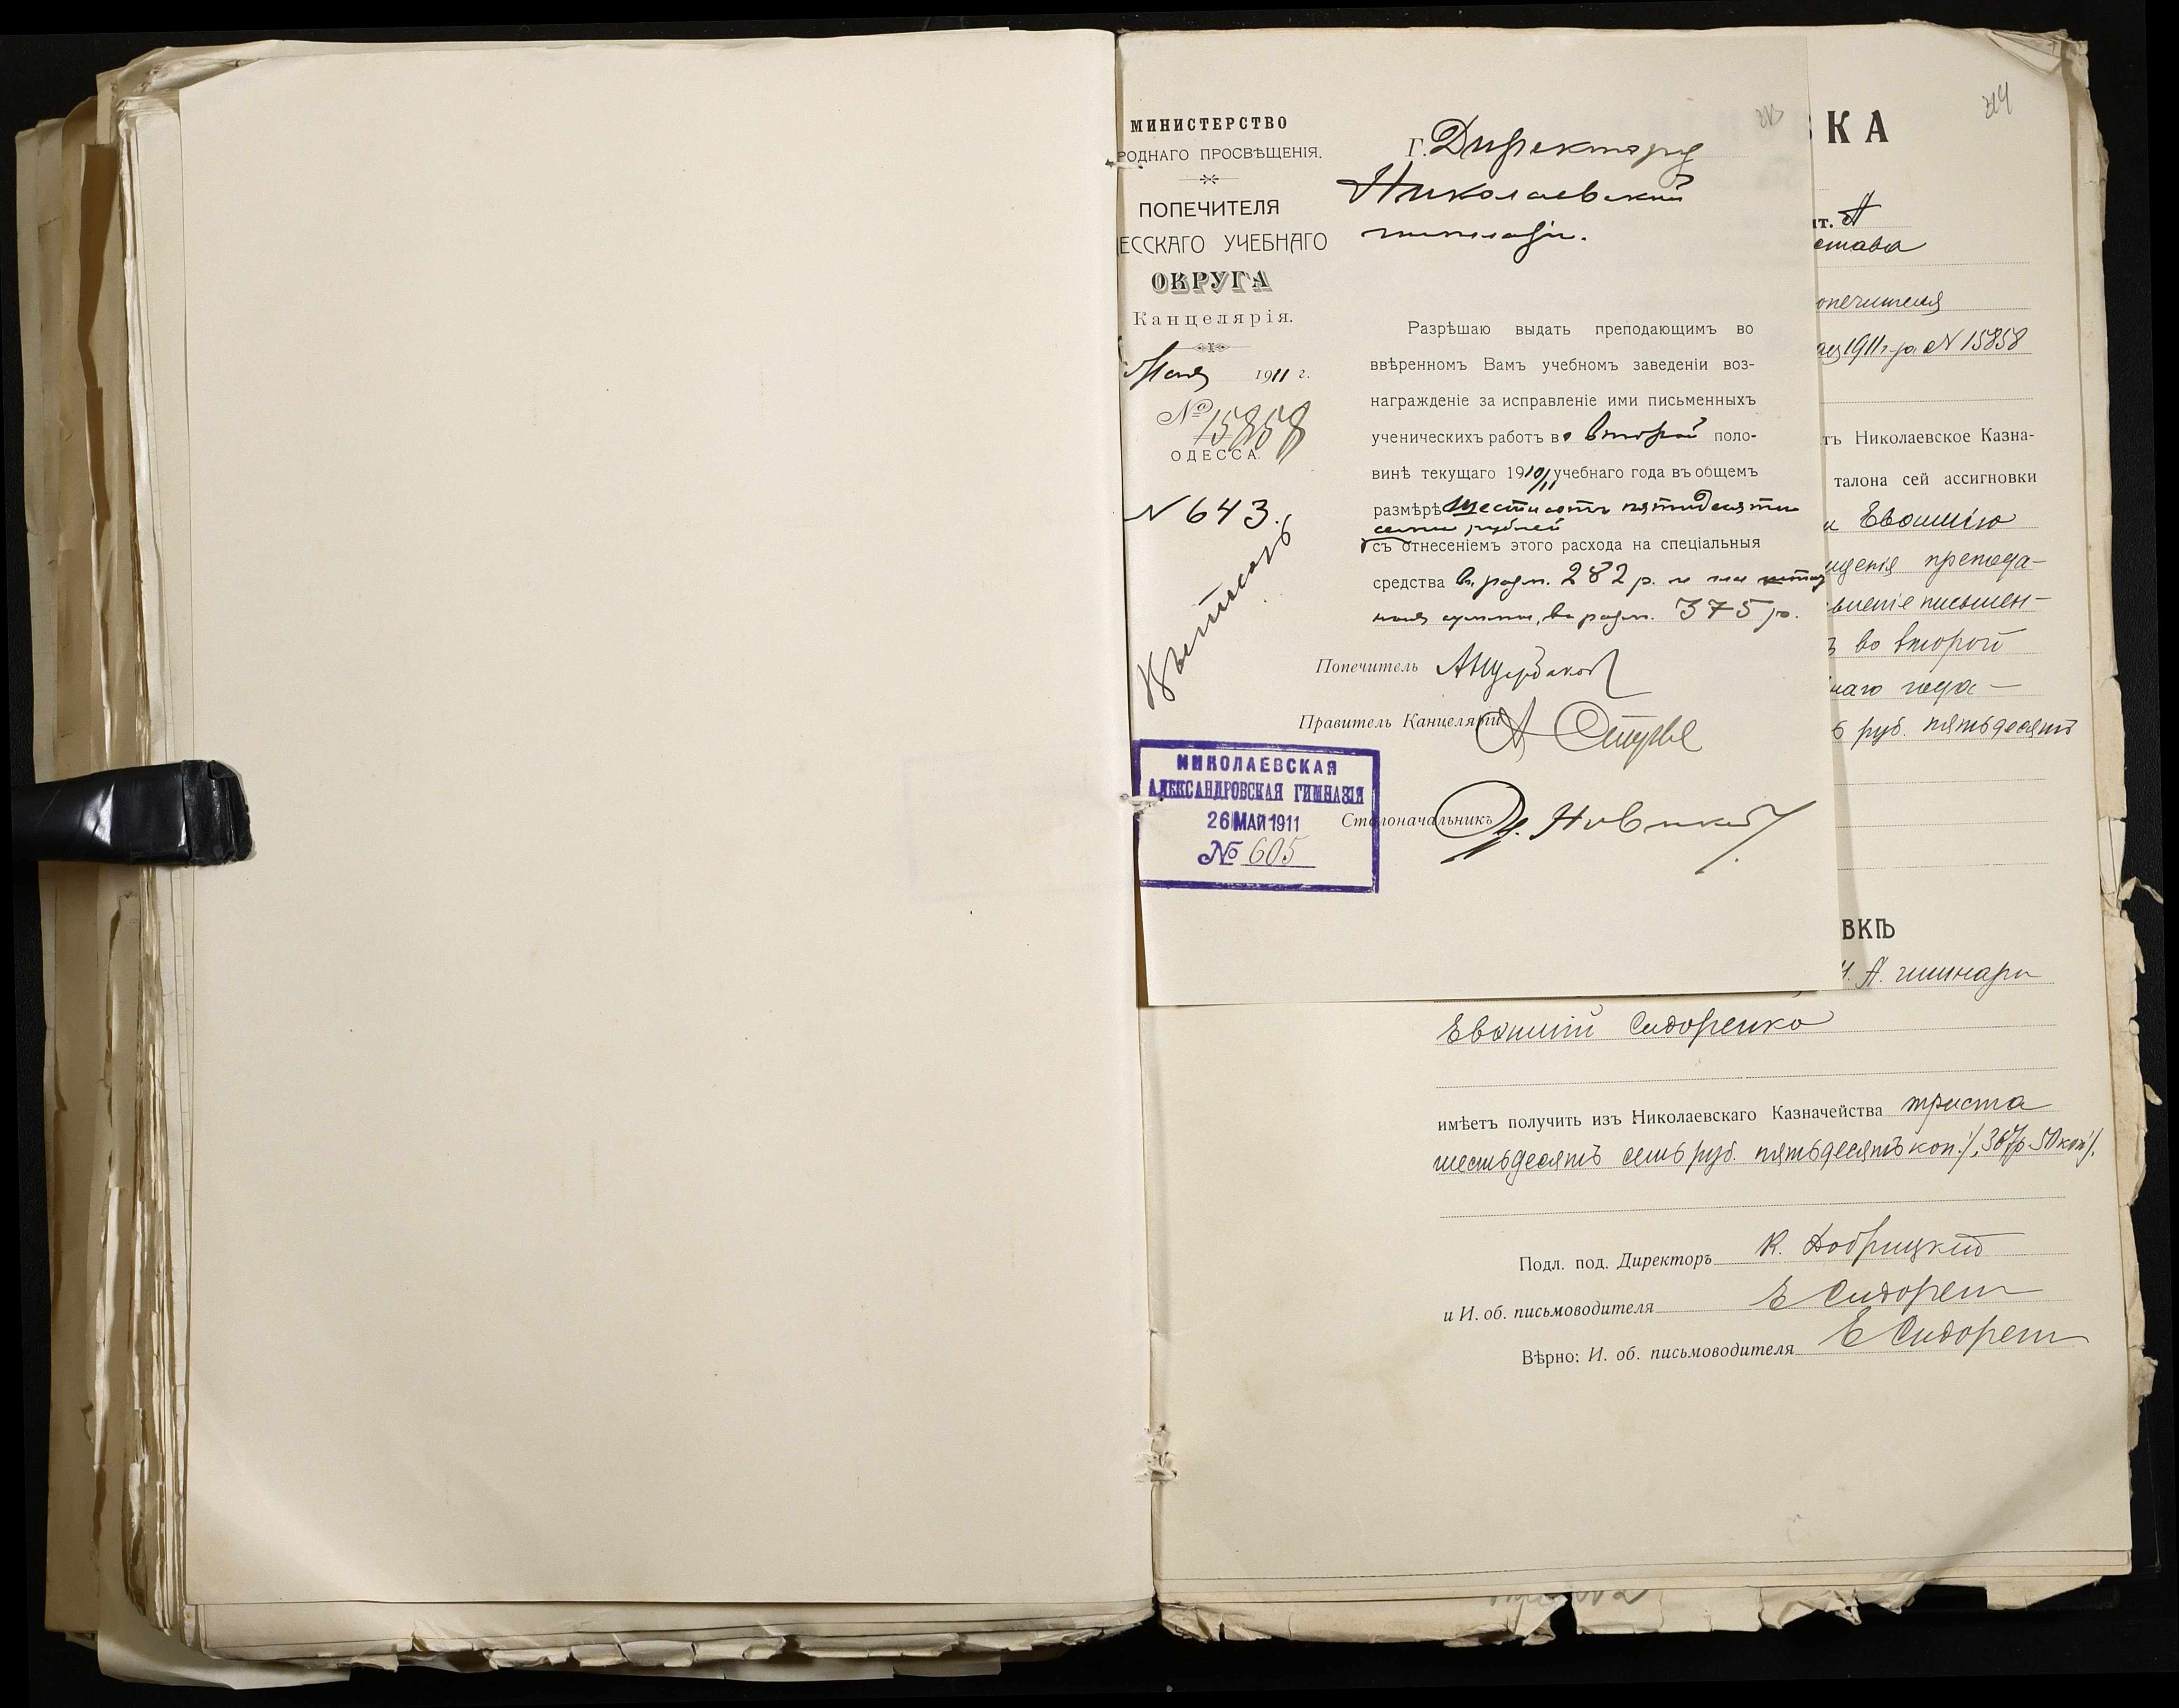 МИНИСТЕРСТВО
РОДНАГО ПРОСВѢЩЕНІЯ.
ПОПЕЧИТЕЛЯ
ЕССКАГО УЧЕБНАГО
ОКРУГА
Канцелярія.
Мая 1911 г.
№ 15858
ОДЕССА.
N 643.
Г. Директору
Николаевской
гимназіи.
Разрѣшаю выдать преподающимъ во
ввѣренномъ Вамъ учебномъ заведеніи воз-
награжденіе за исправленіе ими письменныхъ
ученическихъ работъ во второй поло-
винѣ текущаго 1910/11 учебнаго года въ общемъ
размѣрѣ шестисотъ пятидесяти
семи рублей
съ отнесеніемъ этого расхода на спеціальныя
средства въ разм. 282 р. и на штат
ныя суммы, въ разм. 375 р.
Попечитель
Правитель Канцеляріи
Столоначальникъ
НИКОЛАЕВСКАЯ
АЛЕКСАНДРОВСКАЯ ГИМНАЗІЯ
26 МАЙ 1911
№ 605
314
КА
ит. А
става
опечителя
1911 г за N 15858
тъ Николаевское Казна-
талона сей ассигновки
Евфимію
щенія препода-
вленіе письмен-
во второй
наго года —
руб. пятьдесятъ
ВКѢ
А. гимназіи
Евфимій Сидоренко
имѣетъ получить изъ Николаевскаго Казначейства триста
шестьдесятъ семь руб. пятьдесятъ коп. /.367р. 50 коп/.
Подл. под. Директоръ К. Добрицкій
и И. об. письмоводителя Е Сидорен
Вѣрно: И. об. письмоводителя Е Сидорен